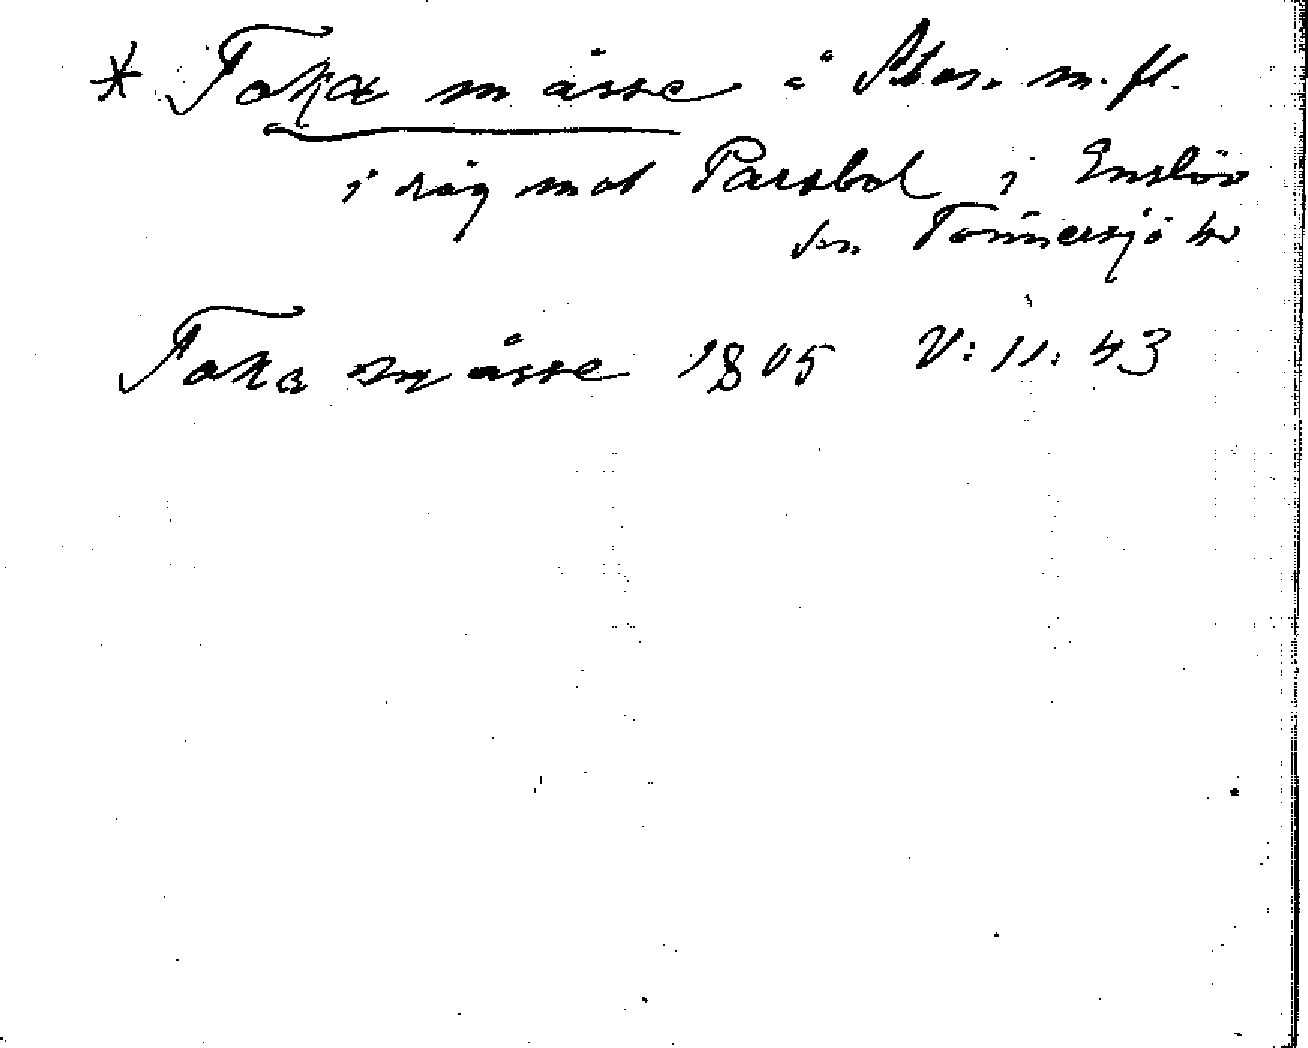 * Toka måsse å Stor. m. fl.
i råg mot Parabol i Enslöv
sn Tönnersjö hd
Toka måsse 1805 V: 11: 43